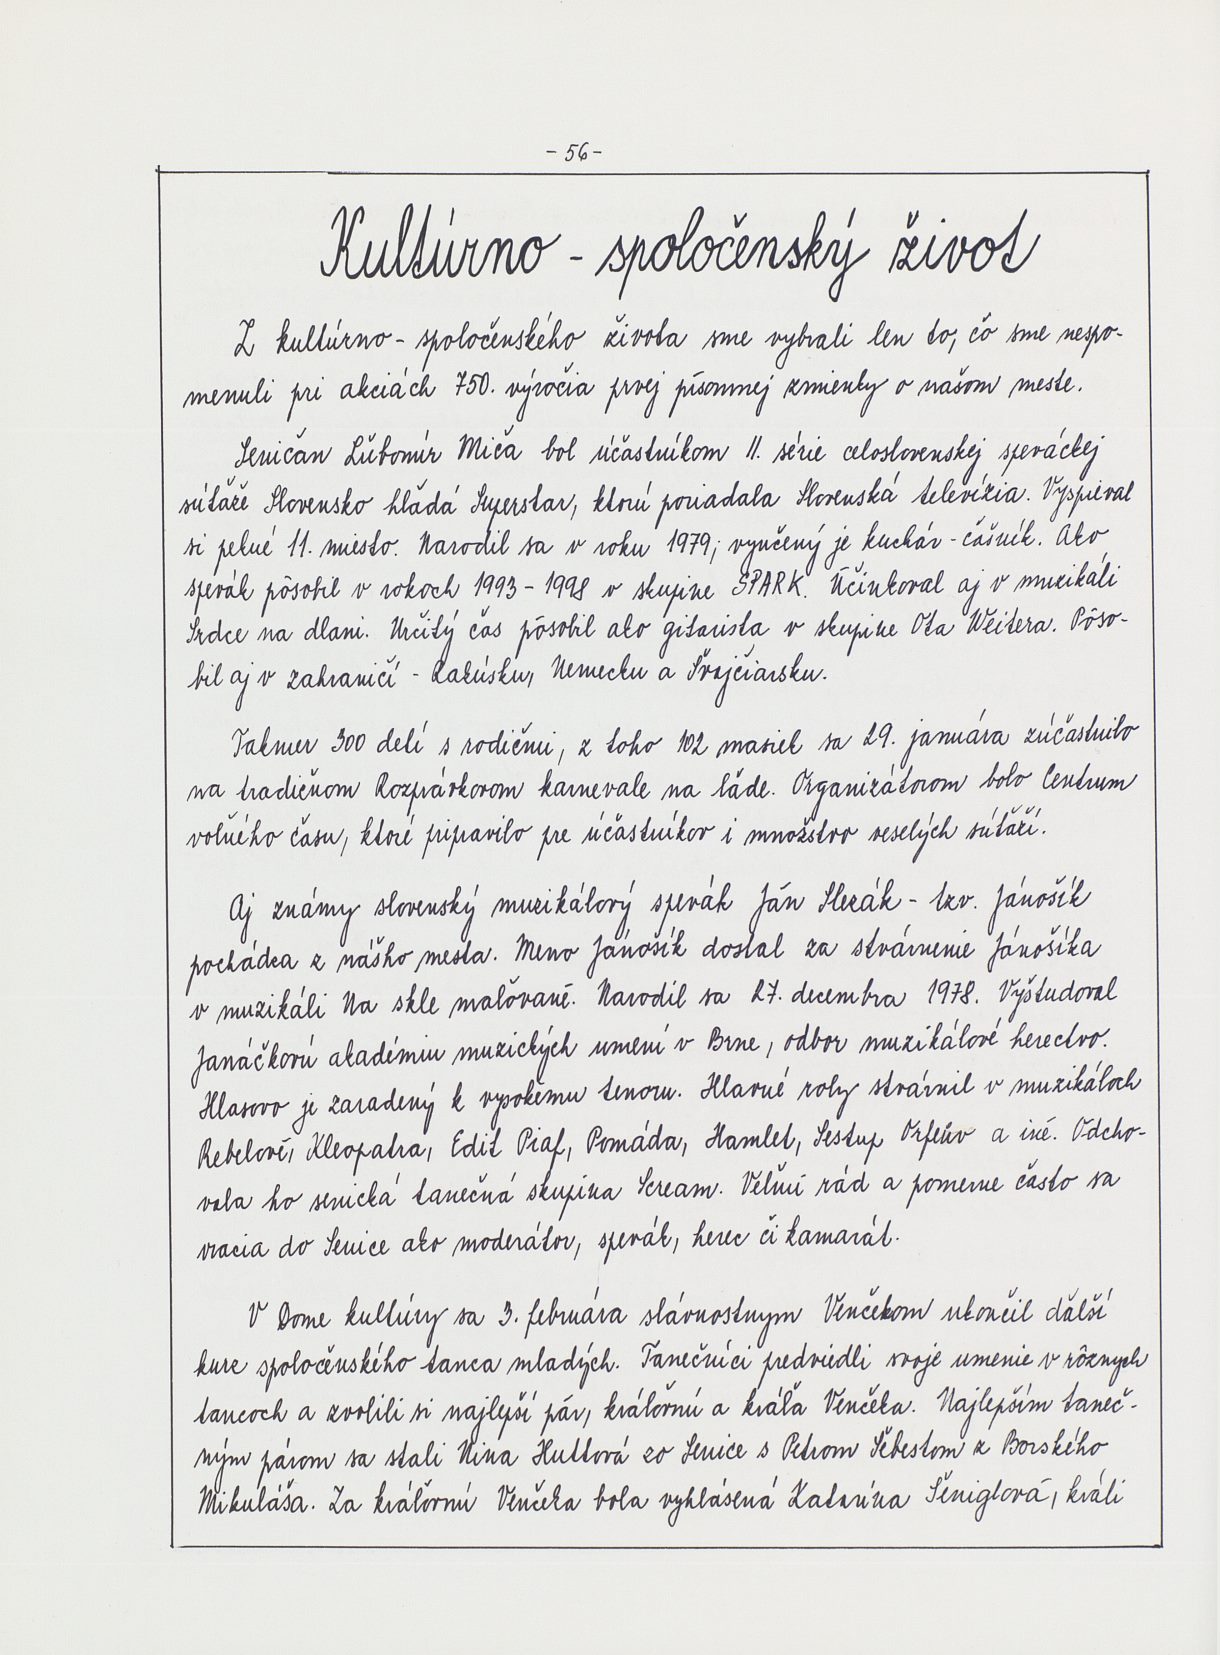 - 56 -
Kultúrno - spoločenský život
Z kultúrno - spoločenského života sme vybrali len to, čo sme nespo-
menuli pri akciách 750. výročia prvej písomnej zmienky o našom meste.
Seničan Ľubomír Miča bol účastníkom II. série celoslovenskej speváckej
súťaže Slovensko hľadá Superstar, ktorú poriadala Slovenská televízia. Vyspieval
si pekné 11. miesto. Narodil sa v roku 1979, vyučený je kuchár - čašník. Ako
spevák pôsobil v rokoch 1993 - 1998 v skupine SPARK. Účinkoval aj v muzikáli
Srdce na dlani. Určitý čas pôsobil ako gitarista v skupine Ota Weitera. Pôso-
bil aj v zahraničí - Rakúsku, Nemecku a Švajčiarsku.
Takmer 300 detí s rodičmi, z toho 102 masiek sa 29. januára zúčastnilo
na tradičnom Rozprávkovom karnevale na ľade. Organizátorom bolo Centrum
voľného času, ktoré pripravilo pre účastníkov i množstvo veselých súťaží.
Aj známy slovenský muzikálový spevák Ján Slezák - tzv. Jánošík
pochádza z nášho mesta. Meno Jánošík dostal za stvárnenie Jánošíka
v muzikáli Na skle maľované. Narodil sa 27. decembra 1978. Vyštudoval
Janáčkovú akadémiu muzických umení v Brne, odbor muzikálové herectvo.
Hlasovo je zaradený k vysokému tenoru. Hlavné roly stvárnil v muzikáloch
Rebelové, Kleopatra, Edit Piaf, Pomáda, Hamlet, Sestup Orfeův a iné. Odcho-
vala ho senická tanečná skupina Scream. Veľmi rád a pomerne často sa
vracia do Senice ako moderátor, spevák, herec či kamarát.
V Dome kultúry sa 3. februára slávnostnym Venčekom ukončil ďalší
kurz spoločenského tanca mladých. Tanečníci predviedli svoje umenie v rôznych
tancoch a zvolili si najlepší pár, kráľovnú a kráľa Venčeka. Najlepším taneč-
ným párom sa stali Nina Huttová zo Senice s Petrom Šebestom z Borského
Mikuláša. Za kráľovnú Venčeka bola vyhlásená Katarína Šeniglová, králi